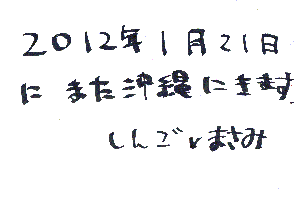 2012年1月21日
に また沖縄にきます
しんごvまさみ